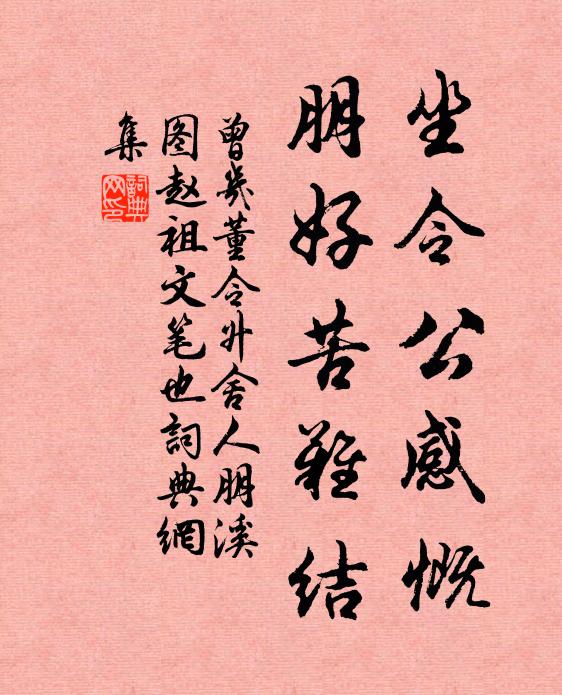 坐令公感慨
朋好苦难结
曾几董令升舍人朋溪
图赵祖文笔也詞典網
集
詞典网印